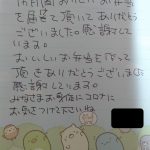 1か月間おいしいお弁当
を届きて頂いてありがとう
ございました。感謝して
います。
おいしいお弁当を作って
頂きありがとうございました
感謝しています。
みなさまお身体にコロナに
お気をつけて下さいね